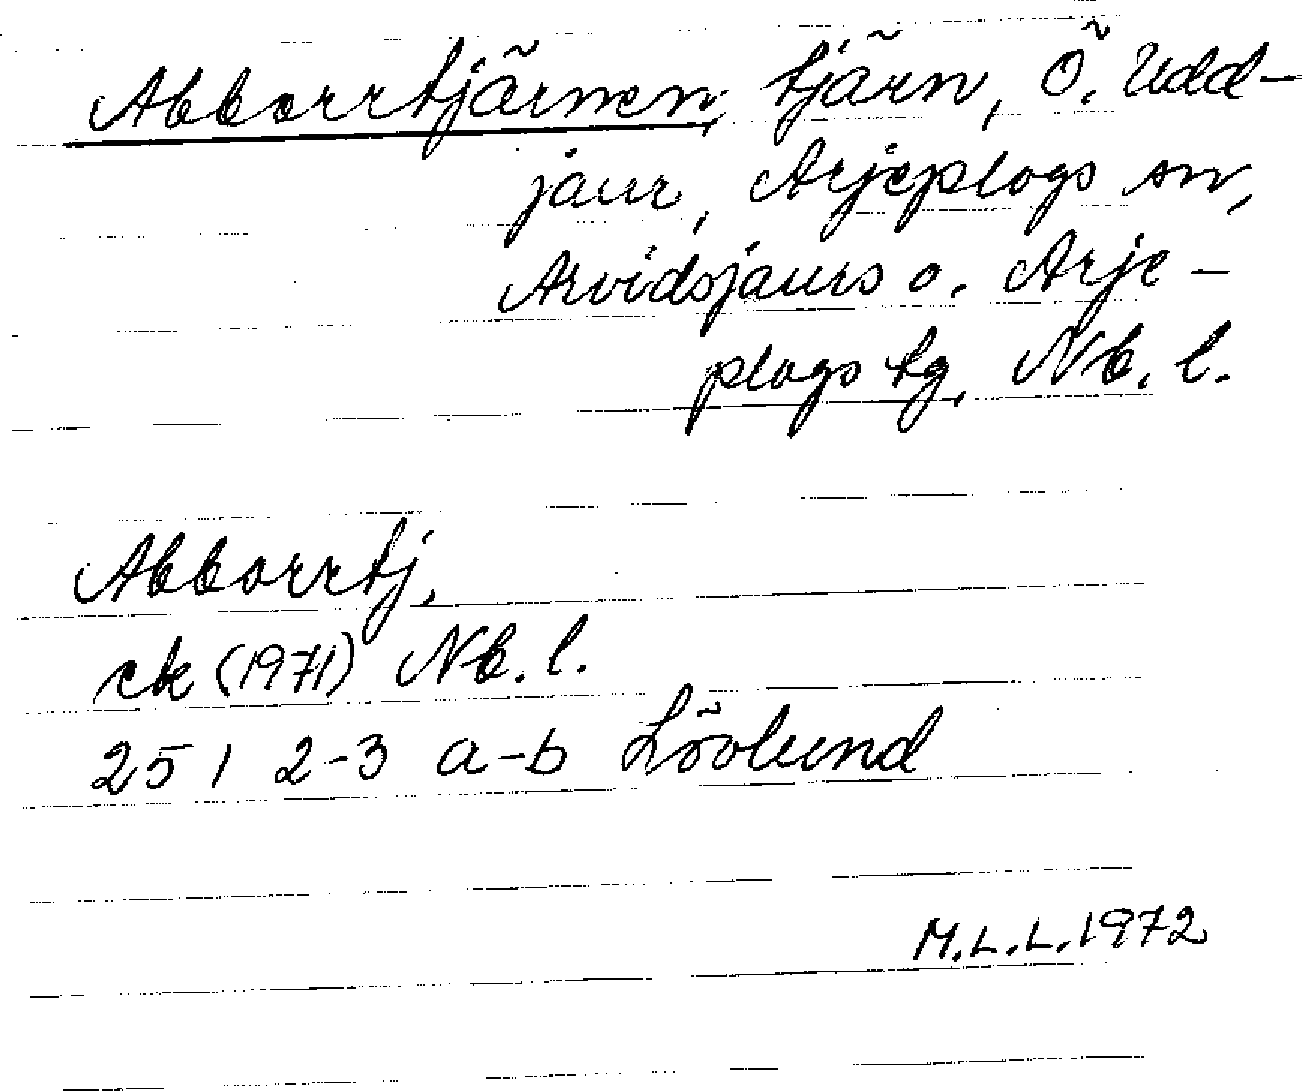 Abborrtjärnen, tjärn, Ö. Udd-
jaur, Arjeplogs sn,
Arvidsjaurs o. Arje-
plogs tg, Nb. l.
Abborrtj.
ek (1971) Nb. l.
25 I 2-3 a-b Lövlund
M.L.L. 1972